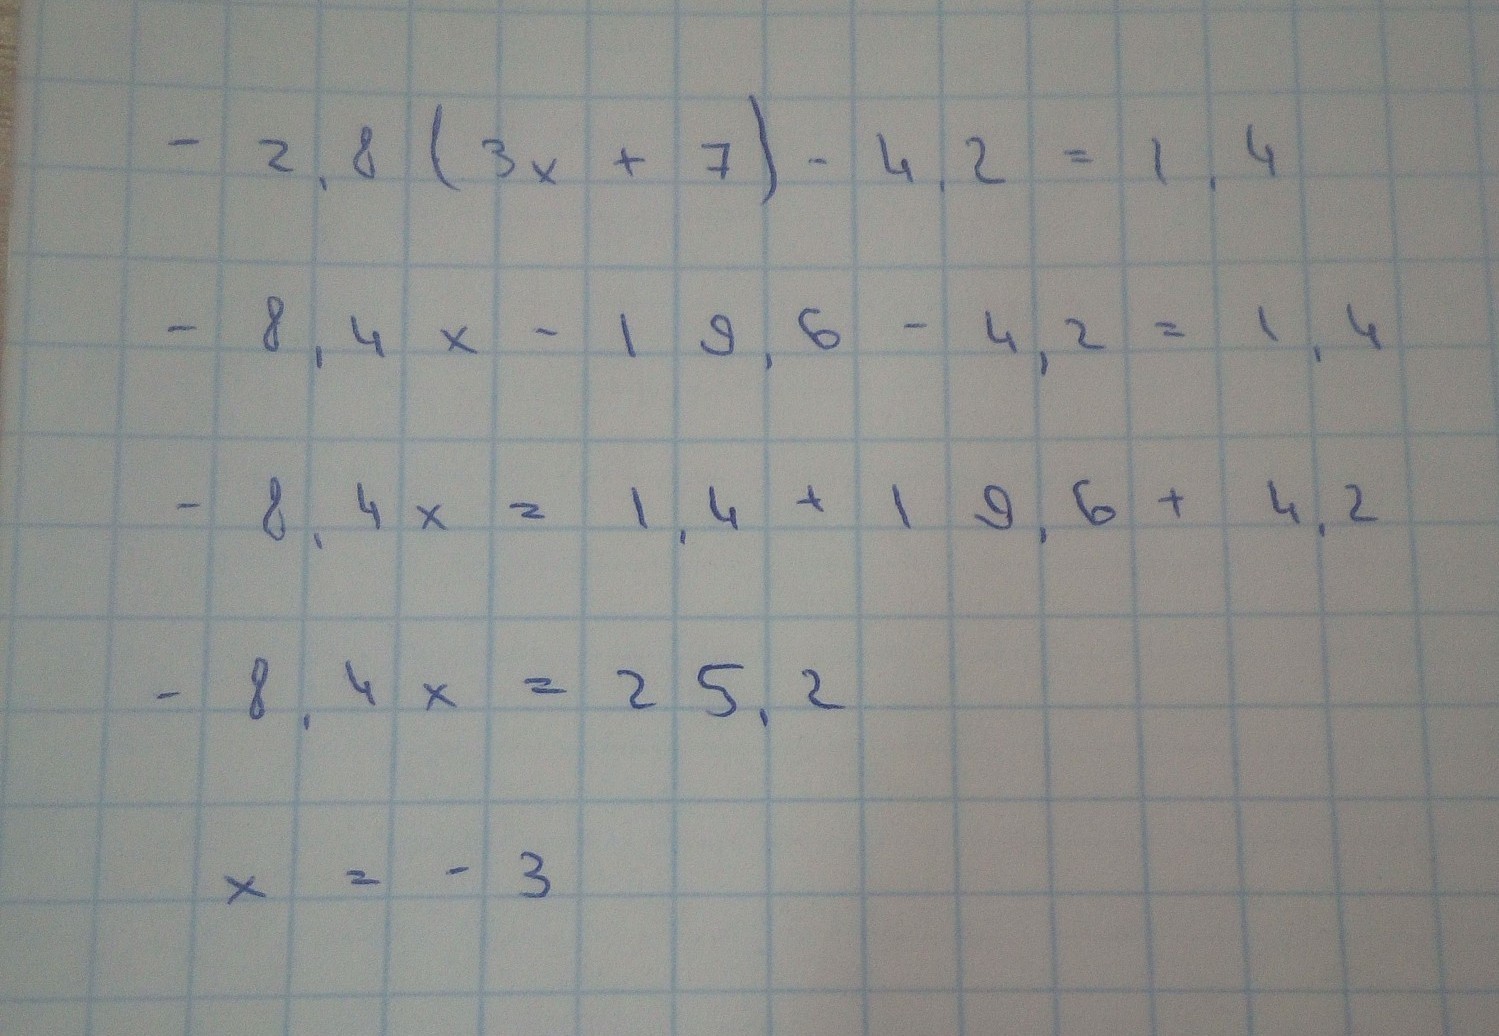 - 2,8 (3x + 7) - 4,2 = 1,4
- 8,4x - 19,6 - 4,2 = 1,4
- 8,4x = 1,4 + 19,6 + 4,2
- 8,4x = 25,2
x = - 3